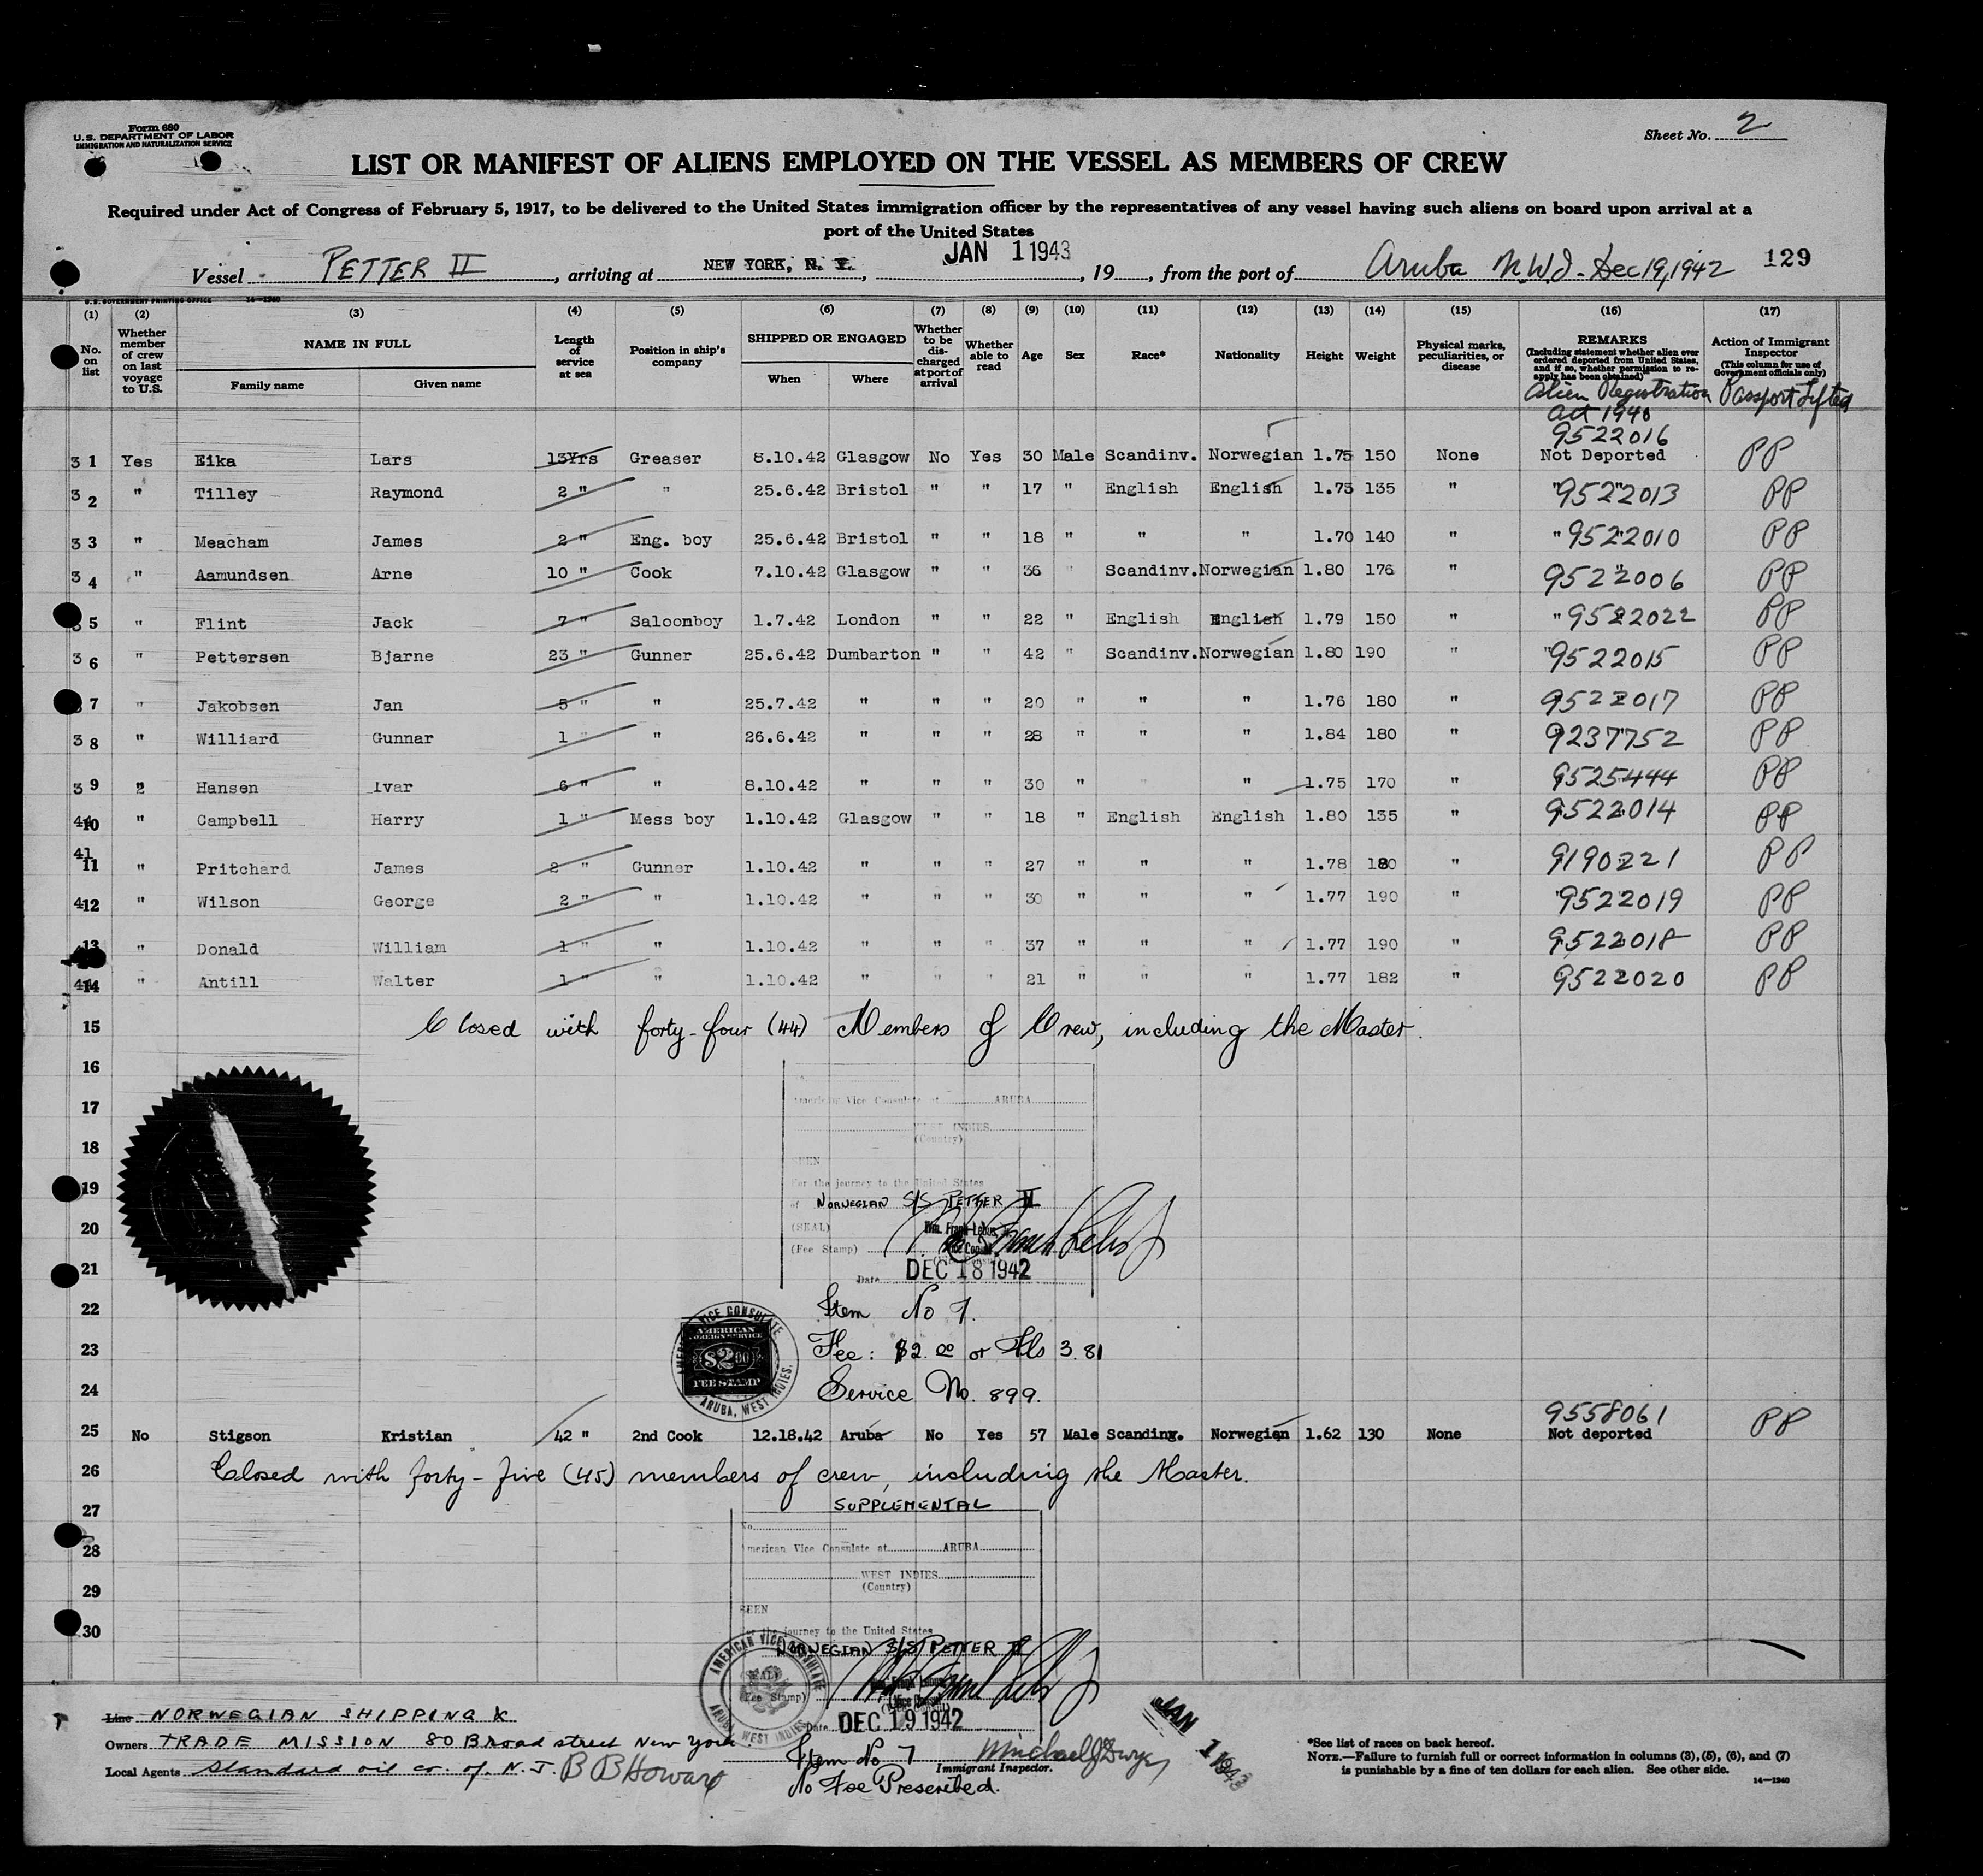 Form 680
U. S. DEPARTMENT OF LABOR
IMMIGRATION AND NATURALIZATION SERVICE
Sheet No. 2
LIST OR MANIFEST OF ALIENS EMPLOYED ON THE VESSEL AS MEMBERS OF CREW
Required under Act of Congress of February 5, 1917, to be delivered to the United States immigration officer by the representatives of any vessel having such aliens on board upon arrival at a
port of the United States
Vessel PETTER II, arriving at NEW YORK, N. Y., JAN 1 1943, 19, from the port of Aruba N.W.I. - Dec 19, 1942 129
U. S. GOVERNMENT PRINTING OFFICE 14—1240
(1) (2) (3) (4) (5) (6) (7) (8) (9) (10) (11) (12) (13) (14) (15) (16) (17)
No. on list
Whether member of crew on last voyage to U.S.
NAME IN FULL
Family name Given name
Length of service at sea
Position in ship's company
SHIPPED OR ENGAGED
When Where
Whether to be discharged at port of arrival
Whether able to read
Age Sex Race* Nationality Height Weight
Physical marks, peculiarities, or disease
REMARKS
(Including statement whether alien ever ordered deported from United States, and if so, whether permission to reapply has been obtained)
Action of Immigrant Inspector
(This column for use of Government officials only)
Alien Registration Passport Lifted
Act 1940
9522016
3 1 Yes Eika Lars 13Yrs Greaser 8.10.42 Glasgow No Yes 30 Male Scandinv. Norwegian 1.75 150 None Not Deported PP
3 2 " Tilley Raymond 2 " " 25.6.42 Bristol " " 17 " English English 1.73 135 " "9522013 PP
3 3 " Meacham James 2 " Eng. boy 25.6.42 Bristol " " 18 " " " 1.70 140 " "9522010 PP
3 4 " Aamundsen Arne 10 " Cook 7.10.42 Glasgow " " 36 " Scandinv. Norwegian 1.80 176 " 9522006 PP
3 5 " Flint Jack 7 " Saloonboy 1.7.42 London " " 22 " English English 1.79 150 " "9522022 PP
3 6 " Pettersen Bjarne 23 " Gunner 25.6.42 Dumbarton " " 42 " Scandinv. Norwegian 1.80 190 " "9522015 PP
3 7 " Jakobsen Jan 5 " " 25.7.42 " " " 20 " " " 1.76 180 " 9522017 PP
3 8 " Williard Gunnar 1 " " 26.6.42 " " " 28 " " " 1.84 180 " 9237752 PP
3 9 " Hansen Ivar 6 " " 8.10.42 " " " 30 " " " 1.75 170 " 9525444 PP
10 " Campbell Harry 1 " Mess boy 1.10.42 Glasgow " " 18 " English English 1.80 135 " 9522014 PP
41 11 " Pritchard James 2 " Gunner 1.10.42 " " " 27 " " " 1.78 180 " 9190221 PP
12 " Wilson George 2 " " 1.10.42 " " " 30 " " " 1.77 190 " "9522019 PP
13 " Donald William 1 " " 1.10.42 " " " 37 " " " 1.77 190 " 9522018 PP
14 " Antill Walter 1 " " 1.10.42 " " " 21 " " " 1.77 182 " 9522020 PP
15 Closed with forty-four (44) Members of Crew, including the Master.
16
American Vice Consulate at ARUBA
17
WEST INDIES
(Country)
18
SEEN
For the journey to the United States
19
of NORWEGIAN S/S PETTER II
20 (SEAL) Wm. Frank Lebus, Jr.
(Fee Stamp) Vice Consul
21 Date DEC 18 1942
22 Item No 7.
AMERICAN VICE CONSULATE ARUBA, WEST INDIES.
AMERICAN FOREIGN SERVICE $2.00 FEE STAMP
23 Fee: $2.00 or Fls 3.81
24 Service No. 899.
9558061
25 No Stigson Kristian 42 " 2nd Cook 12.18.42 Aruba No Yes 57 Male Scandinv. Norwegian 1.62 130 None Not deported PP
26 Closed with forty-five (45) members of crew, including the Master.
27 SUPPLEMENTAL
No.
28 American Vice Consulate at ARUBA
29 WEST INDIES
(Country)
SEEN
30 For the journey to the United States
NORWEGIAN S/S PETTER II
AMERICAN VICE CONSULATE ARUBA, WEST INDIES
SEAL
(Fee Stamp) Vice Consul
Date DEC 19 1942
JAN 1 1943
Line NORWEGIAN SHIPPING &
Owners TRADE MISSION 80 Broad street New York
Local Agents Standard oil co. of N. J. B B Howard
Item No 7
No Fee Prescribed.
Michael J Dwyer
Immigrant Inspector.
*See list of races on back hereof.
NOTE.—Failure to furnish full or correct information in columns (3), (5), (6), and (7)
is punishable by a fine of ten dollars for each alien. See other side.
14—1240